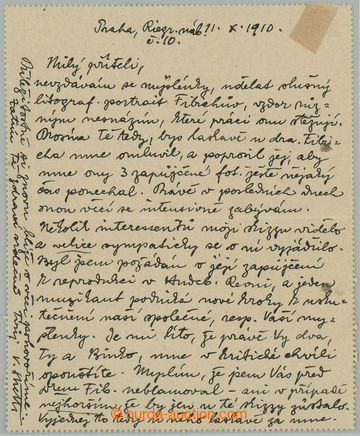 Praha, Riegr. náb. 11. X. 1910.
č. 10.
Milý příteli,
nevzdávám se myšlénky, udělat slušný
litograf. portrait Fibichův, vzdor růz-
ným nesnázím, které práci onu stěžují.
Prosím Tě tedy, bys laskavě u dra. Fibi-
cha mne omluvil, a poprosil jej, aby
mne ony 3 zapůjčené fot. ještě nějaký
čas ponechal. Právě v posledních dnech
onou věcí se intensivně zabývám.
Několik interessentů moji skizzu vidělo
a velice sympaticky se o ní vyjádřilo.
Byl jsem požádán o její zapůjčení
k reprodukci v Hudeb. Revui, a jeden
muzikant podniká nové kroky k usku-
tečnění naší společné, resp. Vaší my-
šlenky. Je mi líto, že právě Vy dva,
Ty a Binko, mne v kritické chvíli
opouštíte. Myslím, že jsem Vás před
drem Fib. neblamoval – ani v případě
nejhorším, že by jen při té skizze zůstalo.
Vyjednej to tedy u něho laskavě za mne.
Příležitostně si znovu o věci pohovoříme.
zatím Tě zdraví srdečně Tvůj
www.burda-auction.com